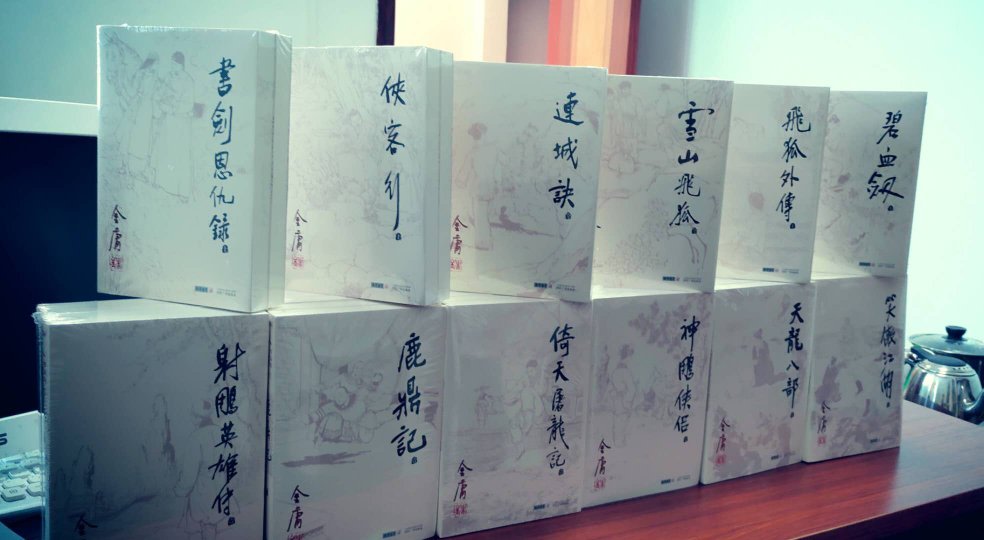 書劍恩仇録
金庸
俠客行
金庸
連城訣
金庸
雪山飛狐
飛狐外傳
碧血劔
射鵰英雄传
金
鹿鼎記
金庸
倚天屠龍記
金庸
神鵰俠侶
金庸
天龍八部
金庸
笑傲江湖
金庸